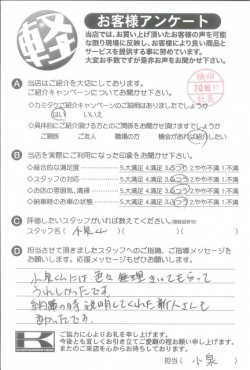 軽
お客様アンケート
当店では、お買い上げ頂いたお客様の声を可能
な限り現場に反映し、お客様により良い商品と
サービスを提供する事に努めています。
大変お手数ですが是非お声をお聞かせ下さい。
検印
社長
A 当店はご紹介を大切にしております。
ご紹介キャンペーンについてお聞かせ下さい。
はい いいえ
ご親族 ご友人 職場の方 機会があれば紹介したい
B 当店を実際にご利用になった印象をお聞かせ下さい。
◇総合的な満足度 5.大満足 4.満足 3.ふつう 2.やや不満 1.不満
◇スタッフの対応 5.大満足 4.満足 3.ふつう 2.やや不満 1.不満
◇お店の雰囲気、清掃 5.大満足 4.満足 3.ふつう 2.やや不満 1.不満
◇納車時のお車の状態 5.大満足 4.満足 3.ふつう 2.やや不満 1.不満
C 評価したいスタッフがいれば教えてください。(複数回答可)
スタッフ名( 小泉
D 担当させて頂きましたスタッフへのご指摘、ご指導メッセージを
お願いします。応援メッセージもぜひお聞かせ下さい。
小泉さんには色々無理きいてもらって
うれしかったです。
納車の時説明してくれた新人さんも
K
ご協力に心よりお礼を申し上げます。
今後とも宜しくお引き立てご愛顧の程お願い申し上げます。
またのご来店を心からお待ちしております。
担当( 小泉 )